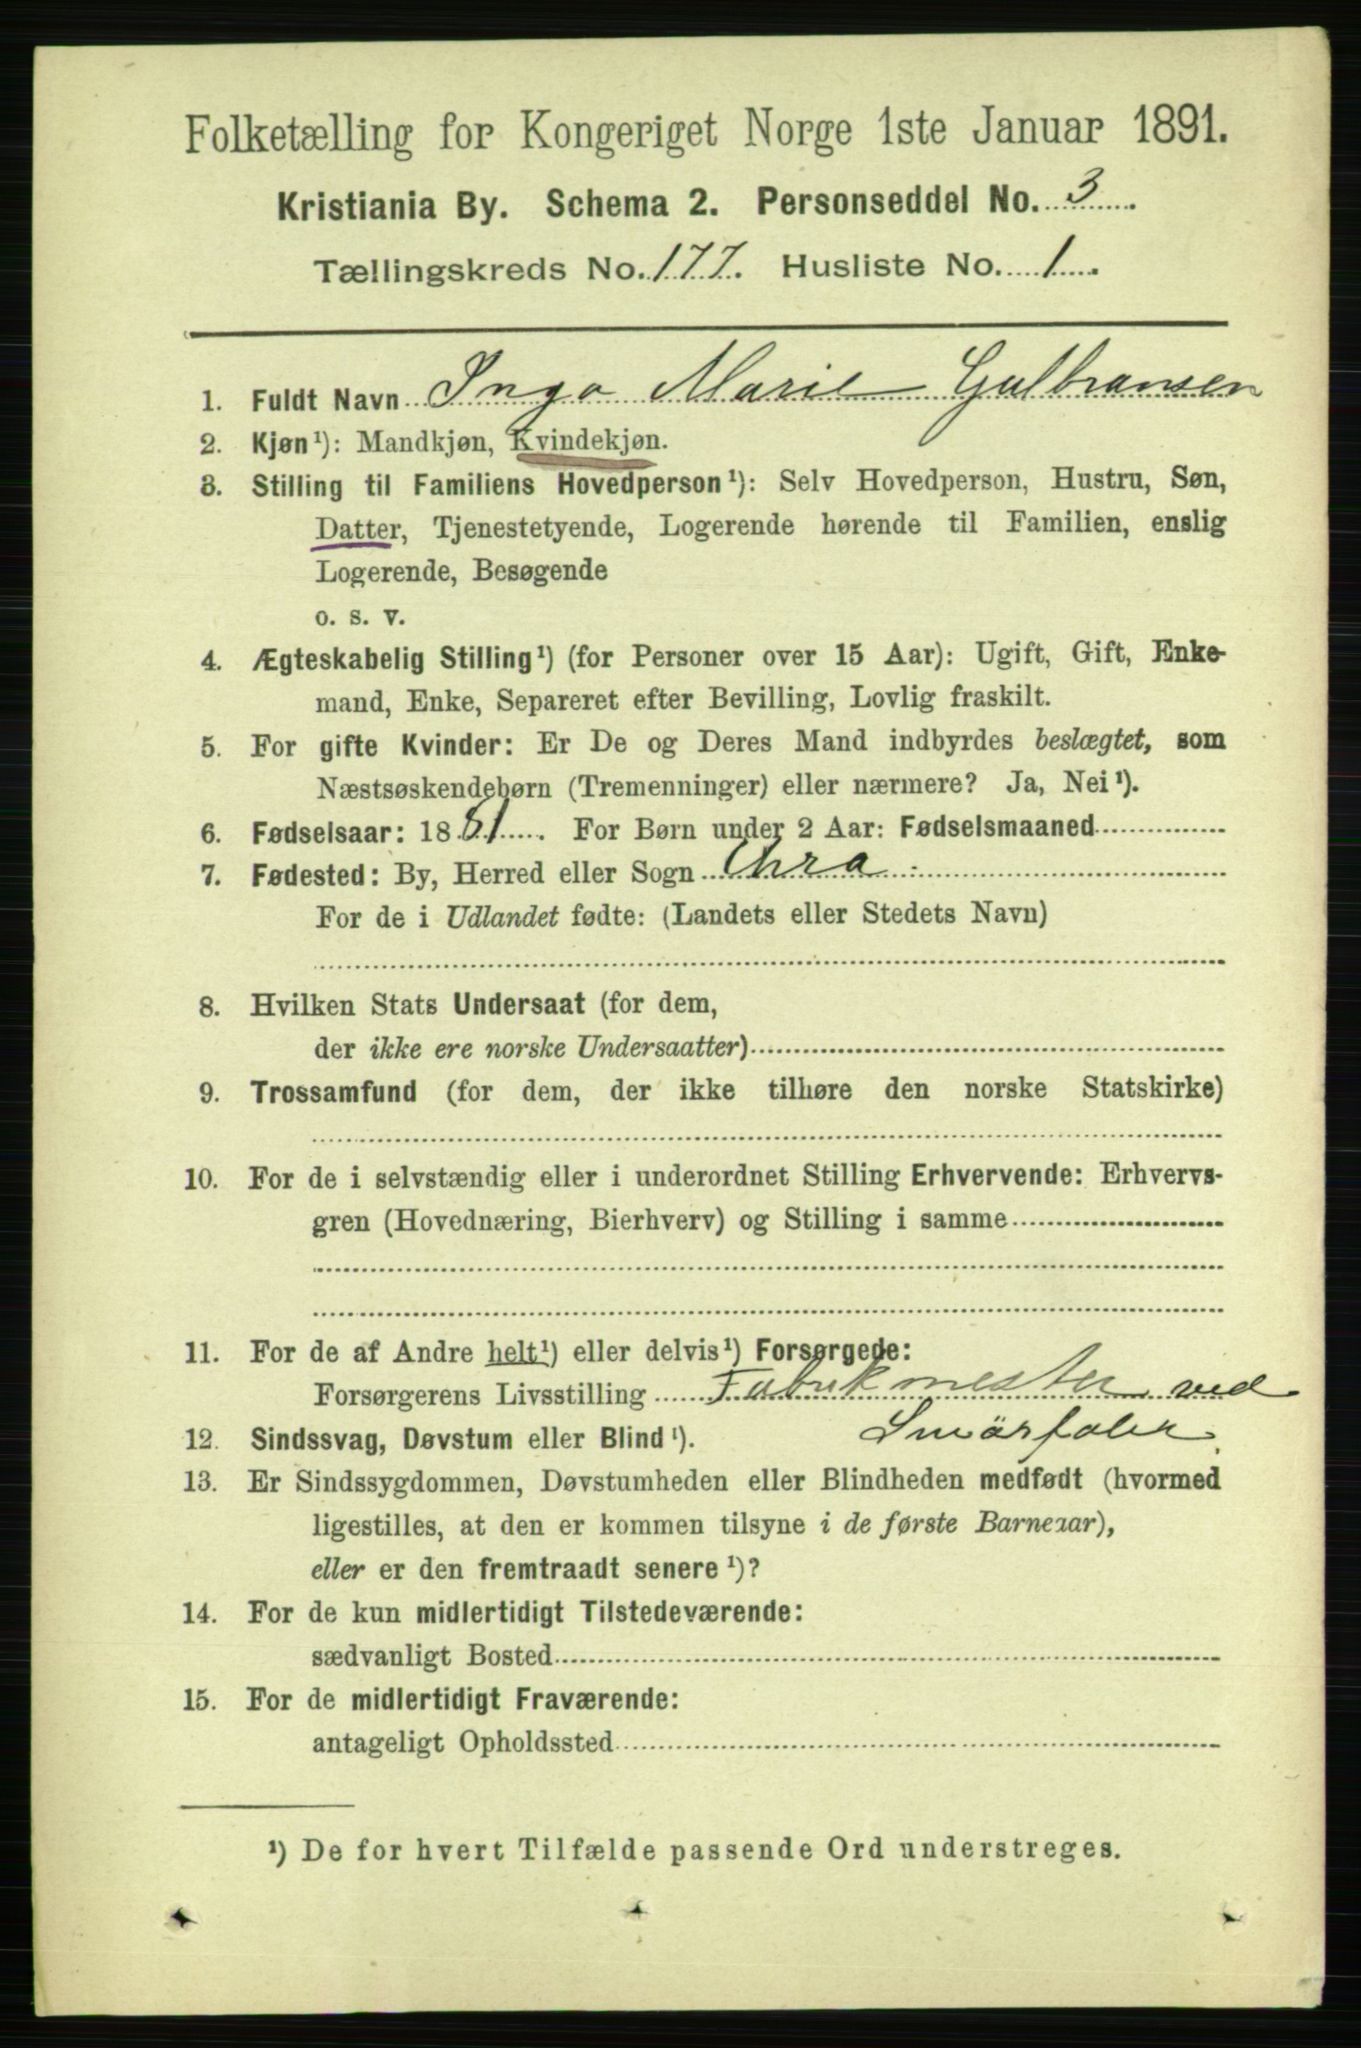 Folketælling for Kongeriget Norge 1ste Januar 1891.
Kristiania By. Schema 2. Personseddel No. 3.
Tællingskreds No. 177. Husliste No. 1.
1. Fuldt Navn Inga Marie Gulbransen
2. Kjøn¹): Mandkjøn, Kvindekjøn.
3. Stilling til Familiens Hovedperson¹): Selv Hovedperson, Hustru, Søn,
Datter, Tjenestetyende, Logerende hørende til Familien, enslig
Logerende, Besøgende
o. s. v.
4. Ægteskabelig Stilling¹) (for Personer over 15 Aar): Ugift, Gift, Enke-
mand, Enke, Separeret efter Bevilling, Lovlig fraskilt.
5. For gifte Kvinder: Er De og Deres Mand indbyrdes beslægtet, som
Næstsøskendebørn (Tremenninger) eller nærmere? Ja, Nei¹).
6. Fødselsaar: 1881. For Børn under 2 Aar: Fødselsmaaned
7. Fødested: By, Herred eller Sogn Chra
For de i Udlandet fødte: (Landets eller Stedets Navn)
8. Hvilken Stats Undersaat (for dem,
der ikke ere norske Undersaatter)
9. Trossamfund (for dem, der ikke tilhøre den norske Statskirke)
10. For de i selvstændig eller i underordnet Stilling Erhvervende: Erhvervs-
gren (Hovednæring, Bierhverv) og Stilling i samme
11. For de af Andre helt¹) eller delvis¹) Forsørgede:
Forsørgerens Livsstilling Fabrikmester ved
Smörfabr.
12. Sindssvag, Døvstum eller Blind¹).
13. Er Sindssygdommen, Døvstumheden eller Blindheden medfødt (hvormed
ligestilles, at den er kommen tilsyne i de første Barneaar),
eller er den fremtraadt senere¹)?
14. For de kun midlertidigt Tilstedeværende:
sædvanligt Bosted
15. For de midlertidigt Fraværende:
antageligt Opholdssted
¹) De for hvert Tilfælde passende Ord understreges.